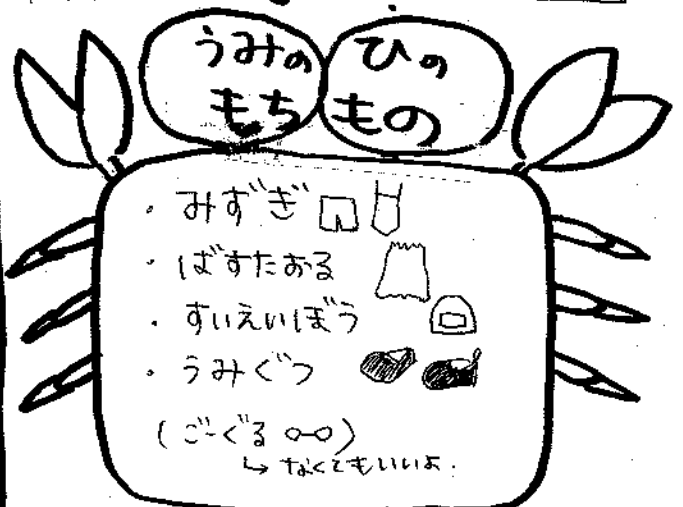 うみのひの
もちもの
・みずぎ
・ばすたおる
・すいえいぼう
・うみぐつ
(ごーぐる)
↳なくてもいいよ.